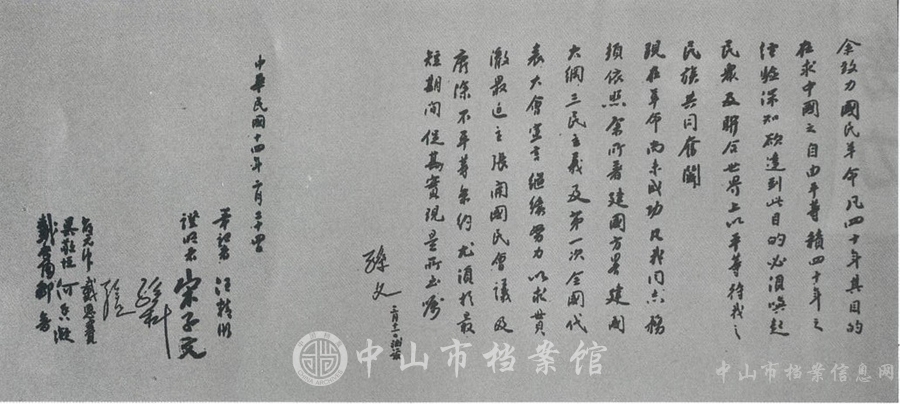 余致力國民革命凡四十年其目的
在求中國之自由平等積四十年之
經驗深知欲達到此目的必須喚起
民眾及聯合世界上以平等待我之
民族共同奮鬭
現在革命尚未成功凡我同志務
須依照余所著建國方畧建國
大綱三民主義及第一次全國代
表大會宣言繼續努力以求貫
澈最近主張開國民會議及
廢除不平等條約尤須於最
短期間促其實現是所至囑
孫文 三月十一日補簽
中華民國十四年二月二十四日
筆記者 汪精衛
證明者 宋子文
孫科
孔祥熙
邵元冲 戴恩賽
吳敬恒 何香凝
戴季陶 鄒魯
中山市档案馆
中山市档案信息网